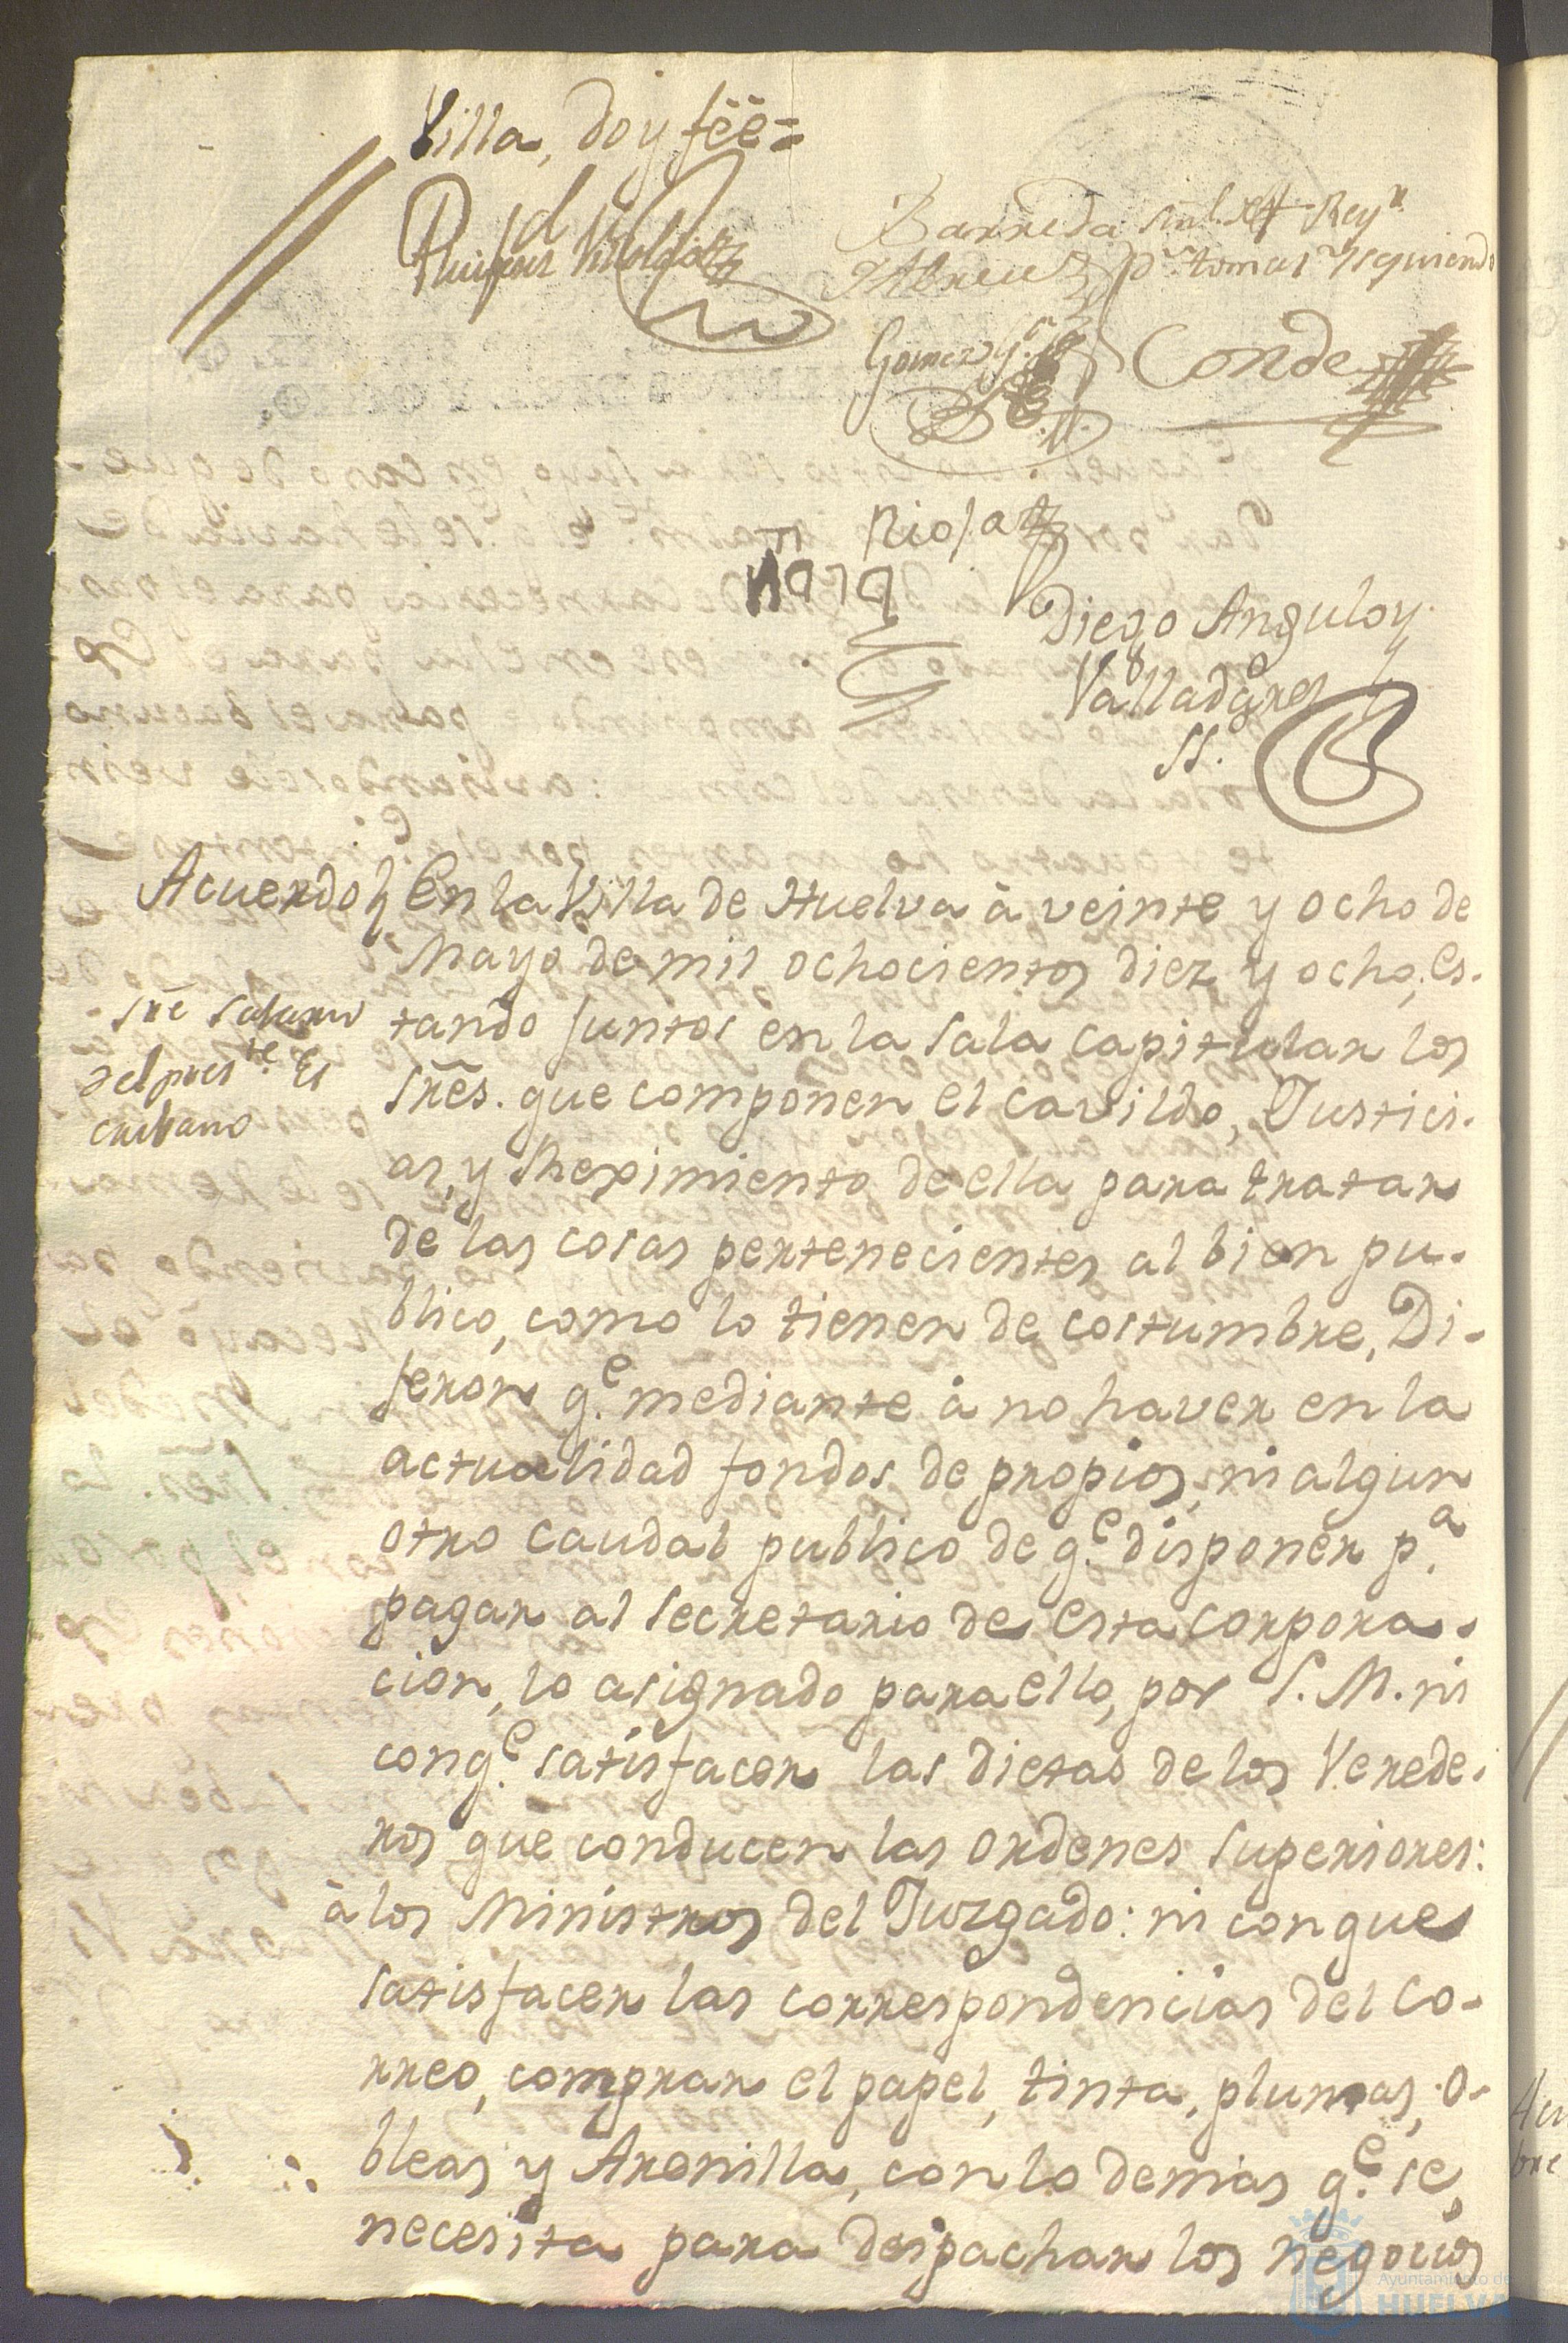 Villa, doy feè=
Barreda
Abreu
Gomez
Conde
Rioja
Diego Angulo y
Valladares
SS.
Acuerdo
En la Villa de Huelva à veinte y ocho de
Mayo de mil ochocientos diez y ocho, es-
tando juntos en la sala capitular los
sre salario
del pres.te Es
cribano
Sres. que componen el cavildo, Justici-
as, y Reximiento de ella para tratar
de las cosas pertenecientes al bien pu-
blico, como lo tienen de costumbre, Di-
jeron q.e mediante à no haver en la
actualidad fondos de propios, ni algun
otro caudal publico de q.e disponer p.a
pagar al secretario de esta corpora-
cion, lo asignado para ello, por S. M. ni
conq.e satisfacer las dietas de los Verede-
ros que conducen las ordenes superiores:
à los Ministros del Juzgado: ni con que
satisfacer las correspondencias del co-
rreo, comprar el papel, tinta, plumas, o-
bleas y Arenilla, con lo demas q.e se
necesita para despachar los negocios
Ayuntamiento de
HUELVA